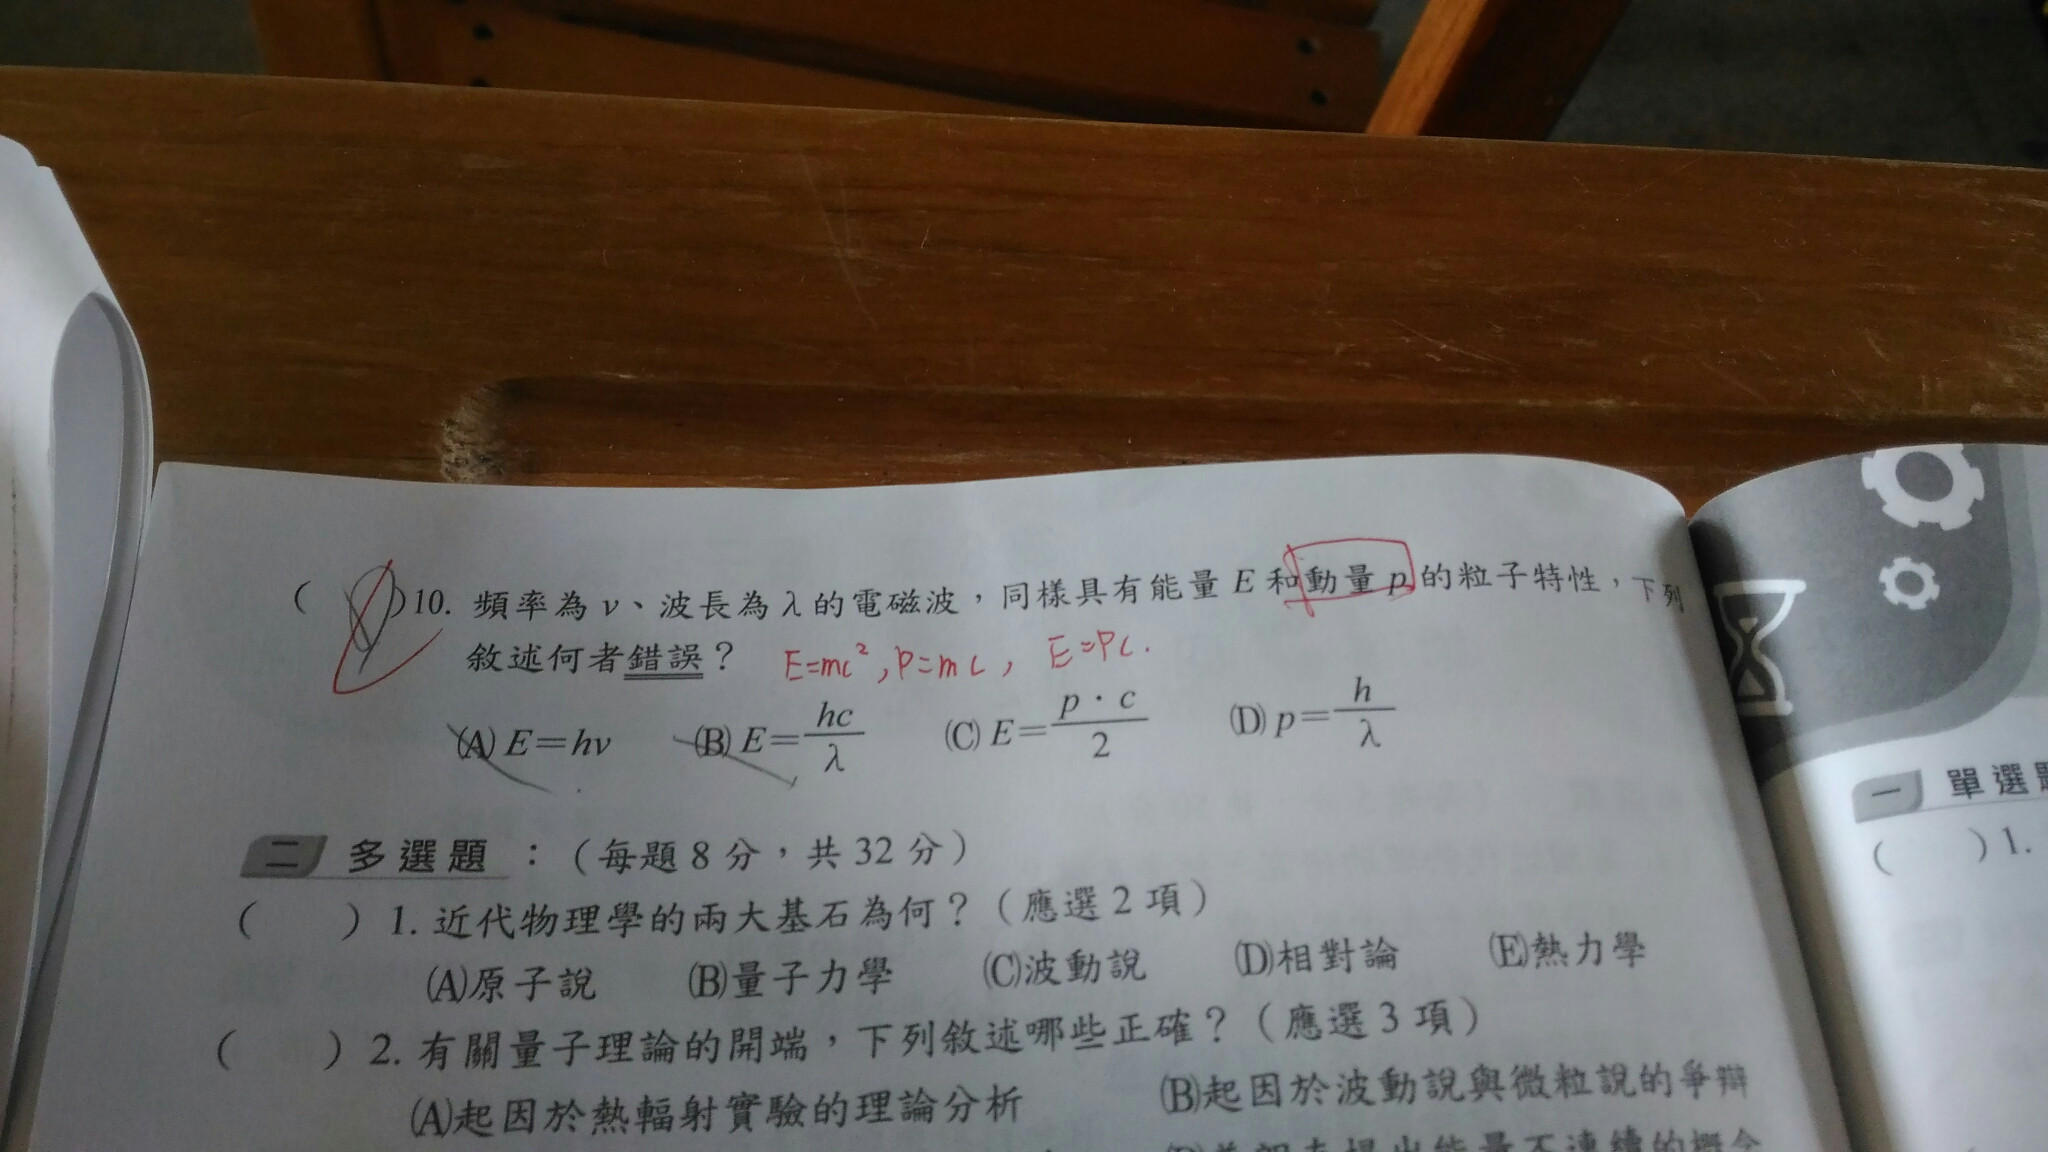 ( )10. 頻率為ν、波長為λ的電磁波，同樣具有能量E和動量p的粒子特性，下列
敘述何者錯誤？ E=mc², P=mc, E=Pc.
(A) E=hν (B) E=hc/λ (C) E=p·c/2 (D) p=h/λ
二 多選題：（每題8分，共32分）
( ) 1. 近代物理學的兩大基石為何？（應選2項）
(A)原子說 (B)量子力學 (C)波動說 (D)相對論 (E)熱力學
( ) 2. 有關量子理論的開端，下列敘述哪些正確？（應選3項）
(A)起因於熱輻射實驗的理論分析 (B)起因於波動說與微粒說的爭辯
提出能量不連續的概念
一 單選題
( ) 1.